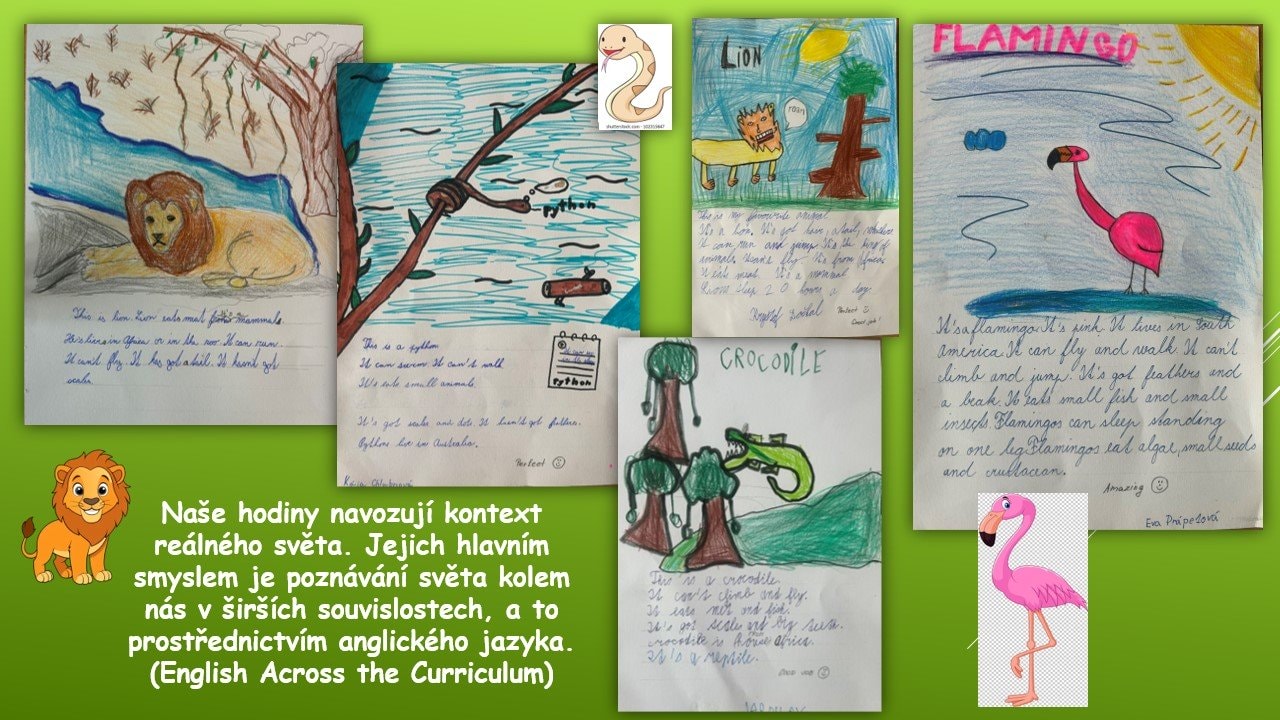 This is lion. Lion eats meat mammals.
He's lives in Africa or in the zoo. It can run.
It can't fly. It has got a tail. It havnt got
scales
This is a python
It can swim It can't walk
It's eats small animals.
It's got scales and dots. It hasn't got
Pythons live in Australia.
Perfect
python
python
shutterstock.com
LION
roar
This is my favourite animal.
It's a lion. It's got hair, a tail,
It can run and jump. It's the king of
animals. It can't fly. It's from Africa.
It eats meat. It's a mammal.
sleep 20 hours a day.
Perfect
Great job!
CROCODILE
This is a crocodile.
It can't climb and fly.
It eats met and fish.
It's got scales and big teeth.
crocodile is from africa.
It's a reptile.
FLAMINGO
It's a flamingo. It's pink. It lives in South
America. It can fly and walk. It can't
climb and jump. It's got feathers and
a beak. It eats small fish and small
insects. Flamingos can sleep standing
on one leg. Flamingos eat algae, small seeds
and crustacean.
Amazing
Eva Prápešová
Naše hodiny navozují kontext
reálného světa. Jejich hlavním
smyslem je poznávání světa kolem
nás v širších souvislostech, a to
prostřednictvím anglického jazyka.
(English Across the Curriculum)